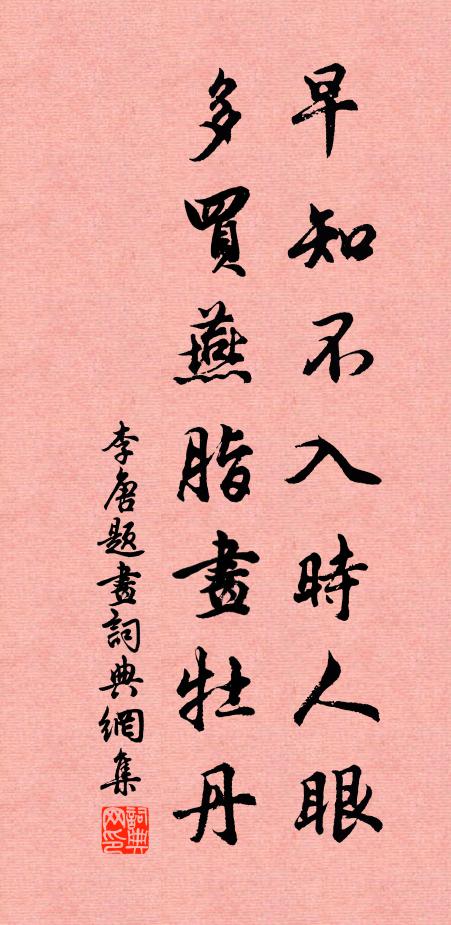 早知不入時人眼
多買燕脂畫牡丹
李唐題畫詞典網集
詞典网印